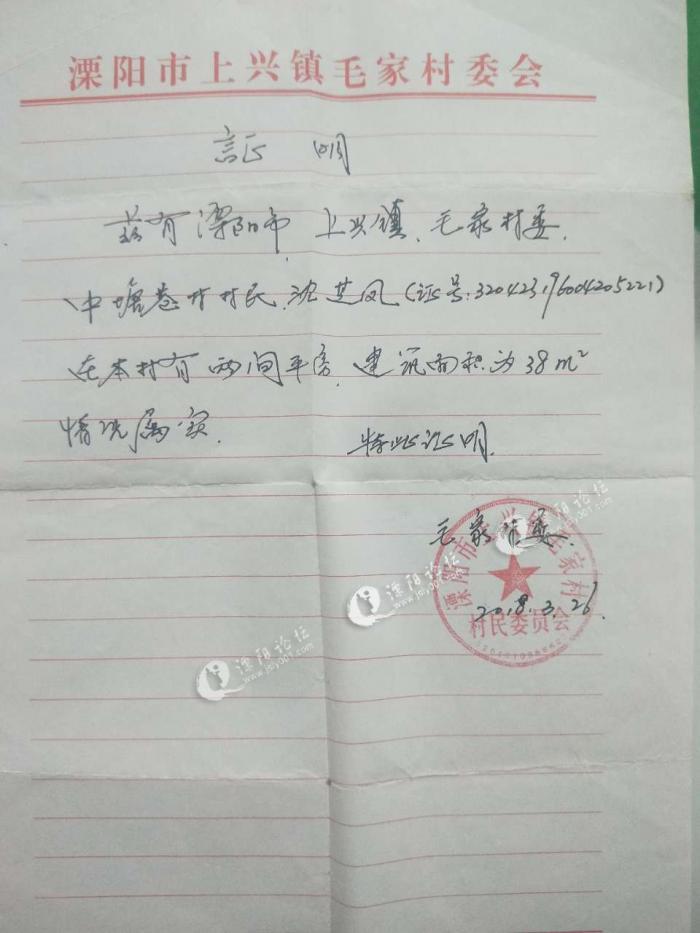 溧阳市上兴镇毛家村委会
証 明
兹有溧阳市、上兴镇、毛家村委、
中塘巷村村民,沈芝凤(证号:320423196004205221)
在本村有两间平房,建筑面积为38m²
情况属实. 特此证明.
毛家村委.
2018.3.26.
溧阳市上兴镇毛家村
村民委员会
溧阳论坛
www.jsly001.com
溧阳论坛
www.jsly001.com
溧阳论坛
www.jsly001.com